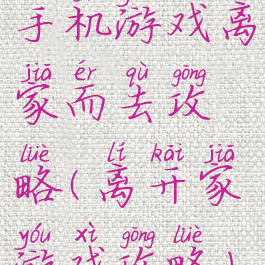 手机游戏离
jiā ér qù gōng
家而去攻
lüè lí kāi jiā
略(离开家
yóu xì gōng lüè
游戏攻略)